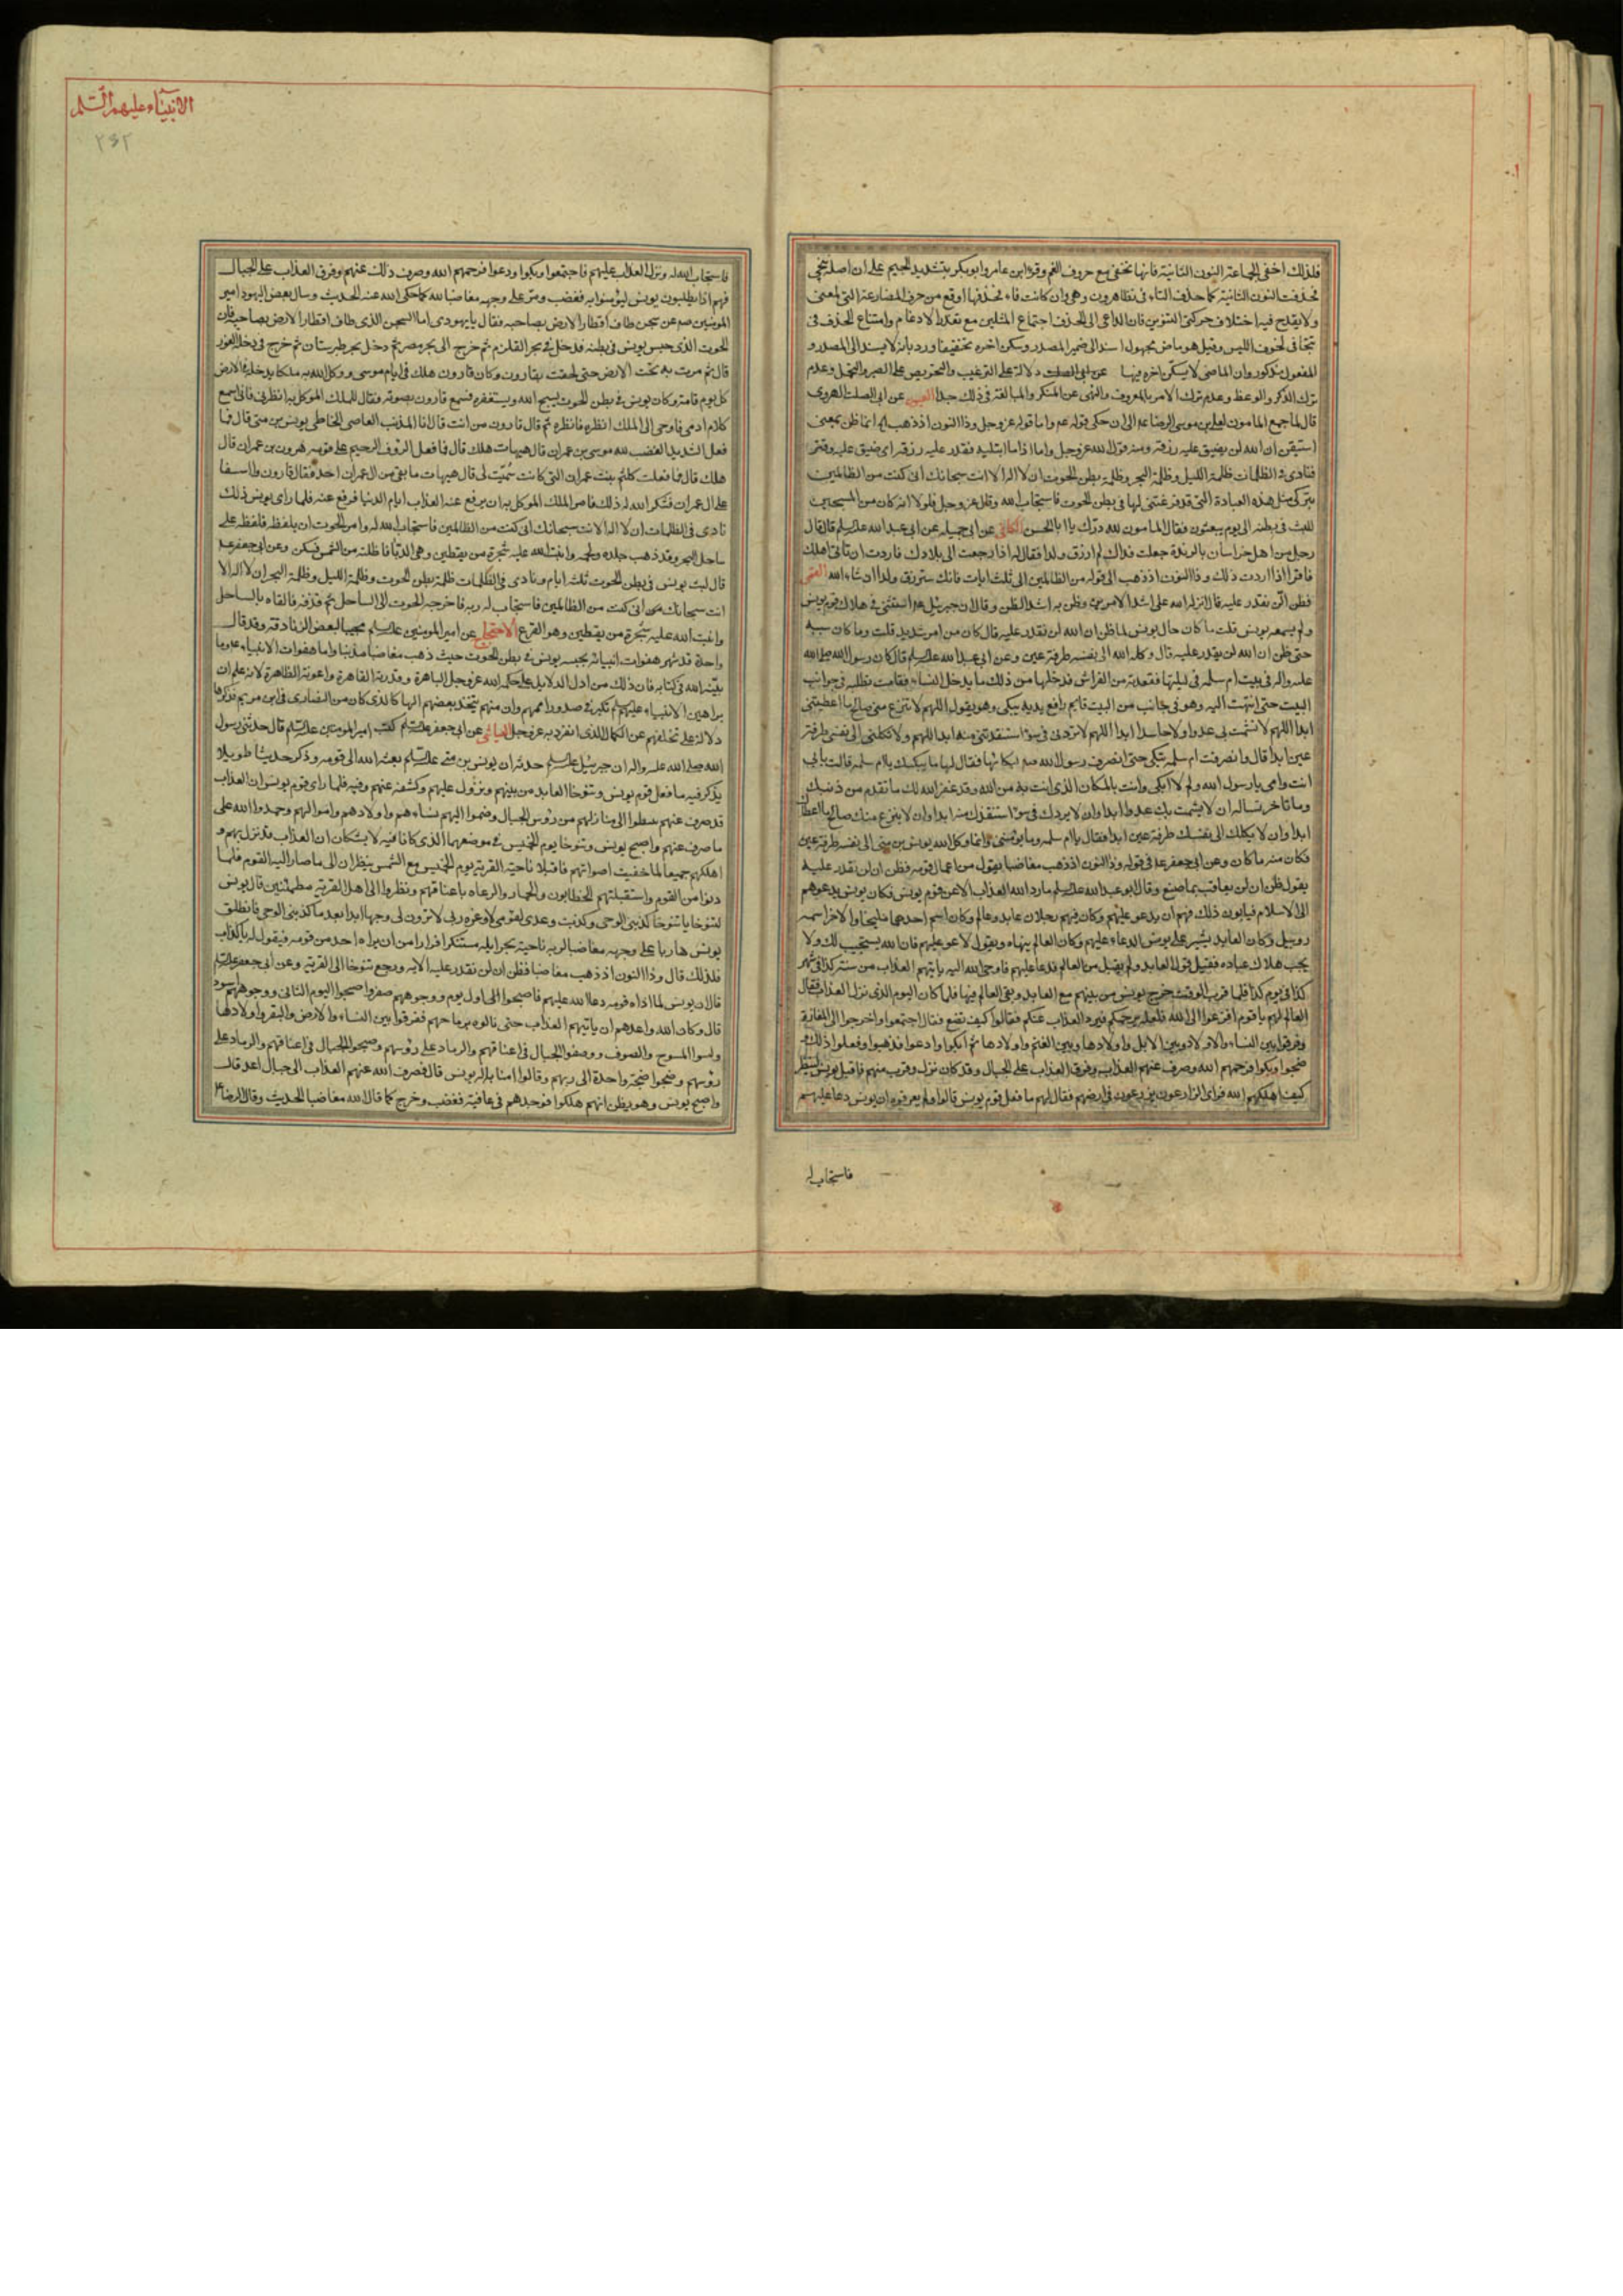 فلذلك اخفى الجماعة النون الثانية فانها تخفى مع حروف الفم وقرا ابن عامر وابو بكر بتشديد الجيم على ان اصله ننجى
فحذفت النون الثانية كما حذف التاء فى تظاهرون وهى وان كانت فاء فحذفها اوقع من حرف المضارعة التى لمعنى
ولا يقدح فيه اختلاف حركتى النونين فان الداعى الى الحذف اجتماع المثلين مع تعذر الادغام وامتناع الحذف فى
تتجافى لخوف اللبس وقيل هو ماض مجهول اسند الى ضمير المصدر وسكن اخره تخفيفا ورد بانه لا يسند الى المصدر و
المفعول مذكور وان الماضى لا يسكن اخره فيها دلالة على الترغيب والتحريص على الصبر والتحمل وعدم
ترك الذكر والوعظ وعدم ترك الامر بالمعروف والنهى عن المنكر والمبالغة فى ذلك جدا العيون عن ابى الصلت الهروى
قال لما جمع المامون لعلى بن موسى الرضا عم الى ان حكى قوله عم واما قوله عز وجل وذا النون اذ ذهب انما ظن بمعنى
استيقن ان الله لن يضيق عليه رزقه ومنه قول الله عز وجل واما اذا ما ابتليه فقدر عليه رزقه اى ضيق عليه وقتر
فنادى فى الظلمات ظلمة الليل وظلمة البحر وظلمة بطن الحوت ان لا اله الا انت سبحانك انى كنت من الظالمين
بتركى مثل هذه العبادة التى قد فرغتنى لها فى بطن الحوت فاستجاب الله وقال عز وجل فلولا انه كان من المسبحين
للبث فى بطنه الى يوم يبعثون فقال المامون لله درك يا ابا الحسن الكافى عن ابى جميله عن ابى عبد الله عليه السلم قال قال
رجل من اهل خراسان بالربذة جعلت فداك لم ارزق ولدا فقال له اذا رجعت الى بلادك فاردت ان تاتى اهلك
فاقرا اذا اردت ذلك وذا النون اذ ذهب الى قوله من الظالمين الى ثلث ايات فانك سترزق ولدا ان شاء الله القمى
فظن ان لن نقدر عليه قال انزله الله على اشد الامرين وظن به اشد الظن وقال ان جبرئيل عم استثنى فى هلاك قوم يونس
ولم يسمعه يونس قلت ما كان حال يونس لما ظن ان الله لن نقدر عليه قال كان من امر شديد قلت وما كان سببه
حتى ظن ان الله لن يقدر عليه قال وكله الله الى نفسه طرفة عين وعن ابى عبد الله عليه السلم قال كان رسول الله صلى الله
عليه واله فى بيت ام سلمه فى ليلتها ففقدته من الفراش فدخلها من ذلك ما يدخل النساء فقامت تطلبه فى جوانب
البيت حتى انتهت اليه وهو فى جانب من البيت قايم رافع يديه يبكى وهو يقول اللهم لا تنزع منى صالح ما اعطيتنى
ابدا اللهم لا تشمت بى عدوا ولا حاسدا ابدا اللهم لا تردنى فى سوء استنقذتنى منه ابدا اللهم ولا تكلنى الى نفسى طرفة
عين ابدا قال وانصرفت ام سلمه تبكى حتى انصرف رسول الله صم لبكائها فقال لها ما يبكيك يا ام سلمه قالت بابى
انت وامى يا رسول الله ولم لا ابكى وانت بالمكان الذى انت به من الله وقد غفر الله لك ما تقدم من ذنبك
وما تاخر تساله ان لا يشمت بك عدوا ابدا وان لا يردك فى سوء استنقذك منه ابدا وان لا ينزع منك صالح ما اعطاك
ابدا وان لا يكلك الى نفسك طرفة عين ابدا فقال يا ام سلمه وما يومننى وانما وكل الله يونس بن متى الى نفسه طرفة عين
فكان منه ما كان وعن ابى جعفر عم فى قوله وذا النون اذ ذهب مغاضبا يقول من اعمال قومه فظن ان لن نقدر عليه
يقول ظن ان لن يعاقب بما صنع وقال ابو عبد الله عليه السلم ما رد الله العذاب الا عن قوم يونس فكان يونس يدعوهم
الى الاسلام فيابون ذلك فهم ان يدعو عليهم وكان فيهم رجلان عابد وعالم وكان اسم احدهما مليخا والاخر اسمه
روبيل وكان العابد يشير على يونس الدعاء عليهم وكان العالم ينهاه ويقول لا تدعو عليهم فان الله يستجيب لك ولا
يحب هلاك عباده فقبل قول العابد ولم يقبل من العالم فدعا عليهم فاوحى الله اليه ياتيهم العذاب من سنة كذا فى شهر
كذا فى يوم كذا فلما قرب الوقت خرج يونس من بينهم مع العابد وبقى العالم فيها فلما كان اليوم الذى نزل العذاب فقال
العالم لهم يا قوم افزعوا الى الله فلعله يرحمكم فيرد العذاب عنكم فقالوا كيف نصنع فقال اجتمعوا واخرجوا الى المفازة
وفرقوا بين النساء والاولاد وبين الابل واولادها وبين الغنم واولادها ثم ابكوا وادعوا فذهبوا وفعلوا ذلك و
ضجوا وبكوا فرحمهم الله وصرف عنهم العذاب وفرق العذاب على الجبال وقد كان نزل وقرب منهم فاقبل يونس لينظر
كيف اهلكهم الله فراى الزارعون يزرعون فى ارضهم فقال لهم ما فعل قوم يونس قالوا ولم يعرفوه ان يونس دعا عليهم
فاستجاب له
الانبياء عليهم السلم
٢٤٢
فاستجاب الله له ونزل العذاب عليهم فاجتمعوا وبكوا ودعوا فرحمهم الله وصرف ذلك عنهم وفرق العذاب على الجبال
فهم اذا يطلبون يونس ليؤمنوا به فغضب ومر على وجهه مغاضبا لله كما حكى الله عنه الحديث وسال بعض اليهود امير
المومنين صم عن سجن طاف اقطار الارض بصاحبه فقال يا يهودى اما السجن الذى طاف اقطار الارض بصاحبه فانه
الحوت الذى حبس يونس فى بطنه فدخل فى بحر القلزم ثم خرج الى بحر مصر ثم دخل بحر طبرستان ثم خرج فى دجلة الغور
قال ثم مرت به تحت الارض حتى لحقت بقارون وكان قارون هلك فى ايام موسى ووكل الله به ملكا يدخله فى الارض
كل يوم قامة وكان يونس فى بطن الحوت يسبح الله ويستغفره فسمع قارون صوته فقال للملك الموكل به انظرنى فانى اسمع
كلام ادمى فاوحى الى الملك انظره فانظره ثم قال قارون من انت قال انا المذنب العاصى الخاطى يونس بن متى قال فما
فعل الشديد الغضب لله موسى بن عمران قال هيهات هلك قال فما فعل الرؤف الرحيم على قومه هرون بن عمران قال
هلك قال فما فعلت كلثم بنت عمران التى كانت سميت لى قال هيهات ما بقى من ال عمران احد فقال قارون وا اسفا
على ال عمران فشكر الله له ذلك فامر الملك الموكل به ان يرفع عنه العذاب ايام الدنيا فرفع عنه فلما راى يونس ذلك
نادى فى الظلمات ان لا اله الا انت سبحانك انى كنت من الظالمين فاستجاب الله له وامر الحوت ان يلفظه فلفظه على
ساحل البحر وقد ذهب جلده ولحمه وانبت الله عليه شجرة من يقطين وهى الدبا فاظلته من الشمس فسكن وعن ابى جعفر عم
قال لبث يونس فى بطن الحوت ثلثة ايام ونادى فى الظلمات ظلمة بطن الحوت وظلمة الليل وظلمة البحر ان لا اله الا
انت سبحانك انى كنت من الظالمين فاستجاب له ربه فاخرجه الحوت الى الساحل ثم قذفه فالقاه بالساحل
وانبت الله عليه شجرة من يقطين وهو القرع الاحتجاج عن امير المومنين عليه السلم مجيبا لبعض الزنادقة وقد قال
واجده قد شهر هفوات انبيائه بحبسه يونس فى بطن الحوت حيث ذهب مغاضبا مذنبا واما هفوات الانبياء عم وما
بينه الله فى كتابه فان ذلك من ادل الدلايل على حكمة الله عز وجل الباهرة وقدرته القاهرة وعزته الظاهرة لانه علم ان
براهين الانبياء عليهم السلم تكبر فى صدور اممهم وان منهم يتخذ بعضهم الها كالذى كان من النصارى فى ابن مريم فذكرها
دلالة على تخلفهم عن الكمال الذى انفرد به عز وجل العياشى عن ابى جعفر عليه السلم كتب امير المومنين عليه السلم قال حدثنى رسول
الله صلى الله عليه واله ان جبرئيل عليه السلم حدثه ان يونس بن متى عليه السلم بعثه الله الى قومه وذكر حديثا طويلا
يذكر فيه ما فعل قوم يونس وتنوخا العابد من بينهم ونزول عليهم وكشفه عنهم وفيه فلما راى قوم يونس ان العذاب
قد صرف عنهم هبطوا الى منازلهم من رؤس الجبال وضموا اليهم نساءهم واولادهم واموالهم وحمدوا الله على
ما صرف عنهم واصبح يونس وتنوخا يوم الخميس فى موضعهما الذى كانا فيه لا يشكان ان العذاب قد نزل بهم و
اهلكهم جميعا لما خفيت اصواتهم فاقبلا ناحية القرية يوم الخميس مع الشمس ينظران الى ما صار اليه القوم فلما
دنوا من القوم واستقبلتهم الحطابون والحمار والرعاه باعناقهم ونظروا الى اهل القرية مطمئنين قال يونس
لتنوخا يا تنوخا كذبنى الوحى وكذبت وعدى لقومى لا وعزة ربى لا ترون لى وجها ابدا بعد ما كذبنى الوحى فانطلق
يونس هاربا على وجهه مغاضبا لربه ناحية بحر ايلة مستنكرا فرارا من ان يراه احد من قومه فيقول له يا كذاب
فلذلك قال وذا النون اذ ذهب مغاضبا فظن ان لن نقدر عليه الايه ورجع تنوخا الى القرية وعن ابى جعفر عليه السلم
قال ان يونس لما اذاه قومه دعا الله عليهم فاصبحوا الى اول يوم ووجوههم صفر واصبحوا اليوم الثانى ووجوههم سود
قال وكان الله واعدهم ان ياتيهم العذاب حتى نالوه برماحهم ففرقوا بين النساء والارض والبقر واولادها
ولبسوا المسوح والصوف ووضعوا الحبال فى اعناقهم والرماد على رؤسهم وضجوا الحبال فى اعناقهم والرماد على
رؤسهم وضجوا ضجة واحدة الى ربهم وقالوا امنا باله يونس قال فصرف الله عنهم العذاب الى جبال امد قال
واصبح يونس وهو يظن انهم هلكوا فوجدهم فى عافية فغضب وخرج كما قال الله مغاضبا الحديث وقال الرضا ع